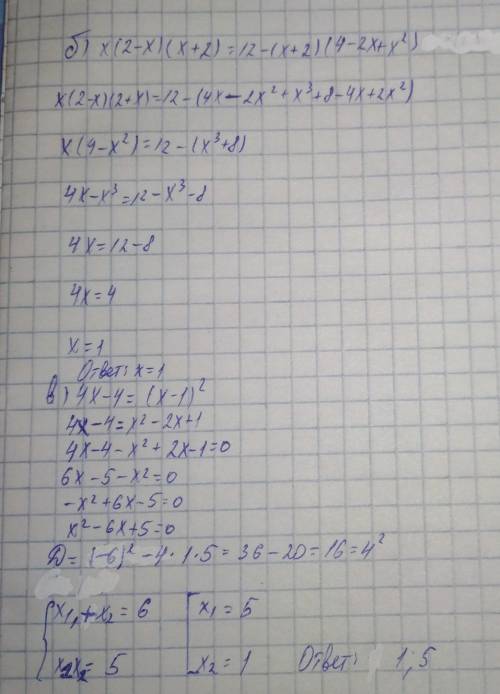 б) x(2-x)(x+2)=12-(x+2)(4-2x+x²)
x(2-x)(2+x)=12-(4x-2x²+x³+8-4x+2x²)
x(4-x²)=12-(x³+8)
4x-x³=12-x³-8
4x=12-8
4x=4
x=1
Ответ: x=1
в) 4x-4=(x-1)²
4x-4=x²-2x+1
4x-4-x²+2x-1=0
6x-5-x²=0
-x²+6x-5=0
x²-6x+5=0
D=(-6)²-4·1·5=36-20=16=4²
{x₁+x₂=6 [x₁=5
x₁x₂=5 x₂=1 Ответ: 1;5